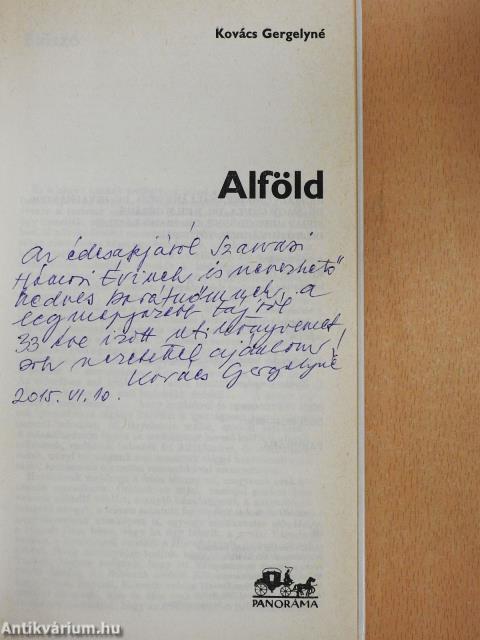 Kovács Gergelyné
Alföld
Az édesapjáról Szarvasi
Hámori Évinek is nevezhető
kedves barátnőmnek, a
legmagyarabb tájról
33 éve írott útikönyvemet
sok szeretettel ajánlom!
Kovács Gergelyné
2015. VI. 10.
PANORÁMA
Antikvárium.hu